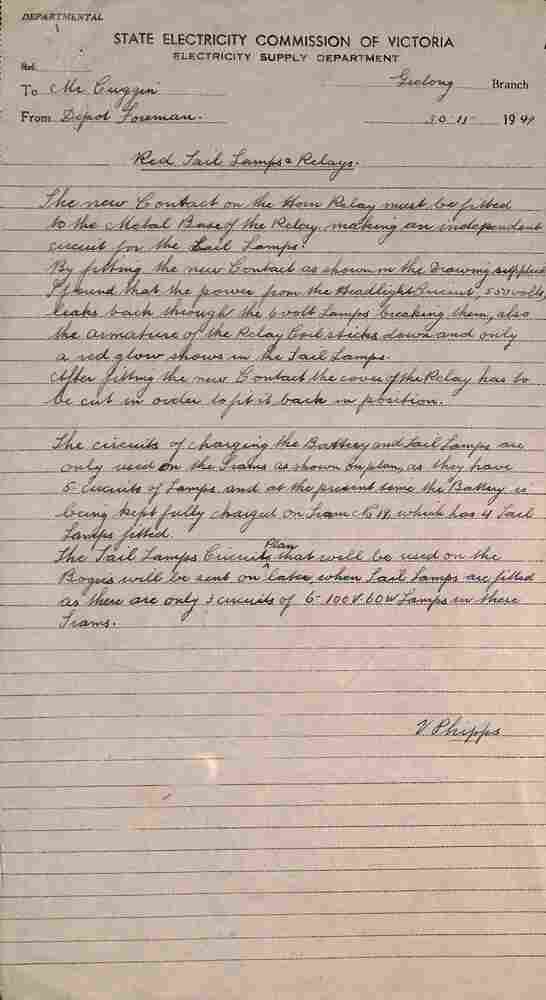 DEPARTMENTAL
STATE ELECTRICITY COMMISSION OF VICTORIA
ELECTRICITY SUPPLY DEPARTMENT
Ref.
Geelong Branch
To Mr Cuggin
From Depot Foreman. 30 11 1941
Red Tail Lamps & Relays.
The new Contact on the Horn Relay must be fitted
to the Metal Base of the Relay, making an independent
circuit for the Tail Lamps.
By fitting the new Contact as shown in the Drawing supplied
I found that the power from the Headlight Circuit, 550 volts,
leaks back through the 6 volt Lamps breaking them, also
the armature of the Relay Coil sticks down and only
a red glow shows in the Tail Lamps.
After fitting the new Contact the cover of the Relay has to
be cut in order to fit it back in position.
The circuits of charging the Battery and Tail Lamps are
only used on the Trams as shown on plan, as they have
5 circuits of Lamps and at the present time the Battery is
being kept fully charged on Tram No 19, which has 4 Tail
Lamps fitted.
The Tail Lamps Circuits Plan that will be used on the
Bogies will be sent on later, when Tail Lamps are fitted
as there are only 3 circuits of 6-100V-60W Lamps in these
Trams.
V Phipps